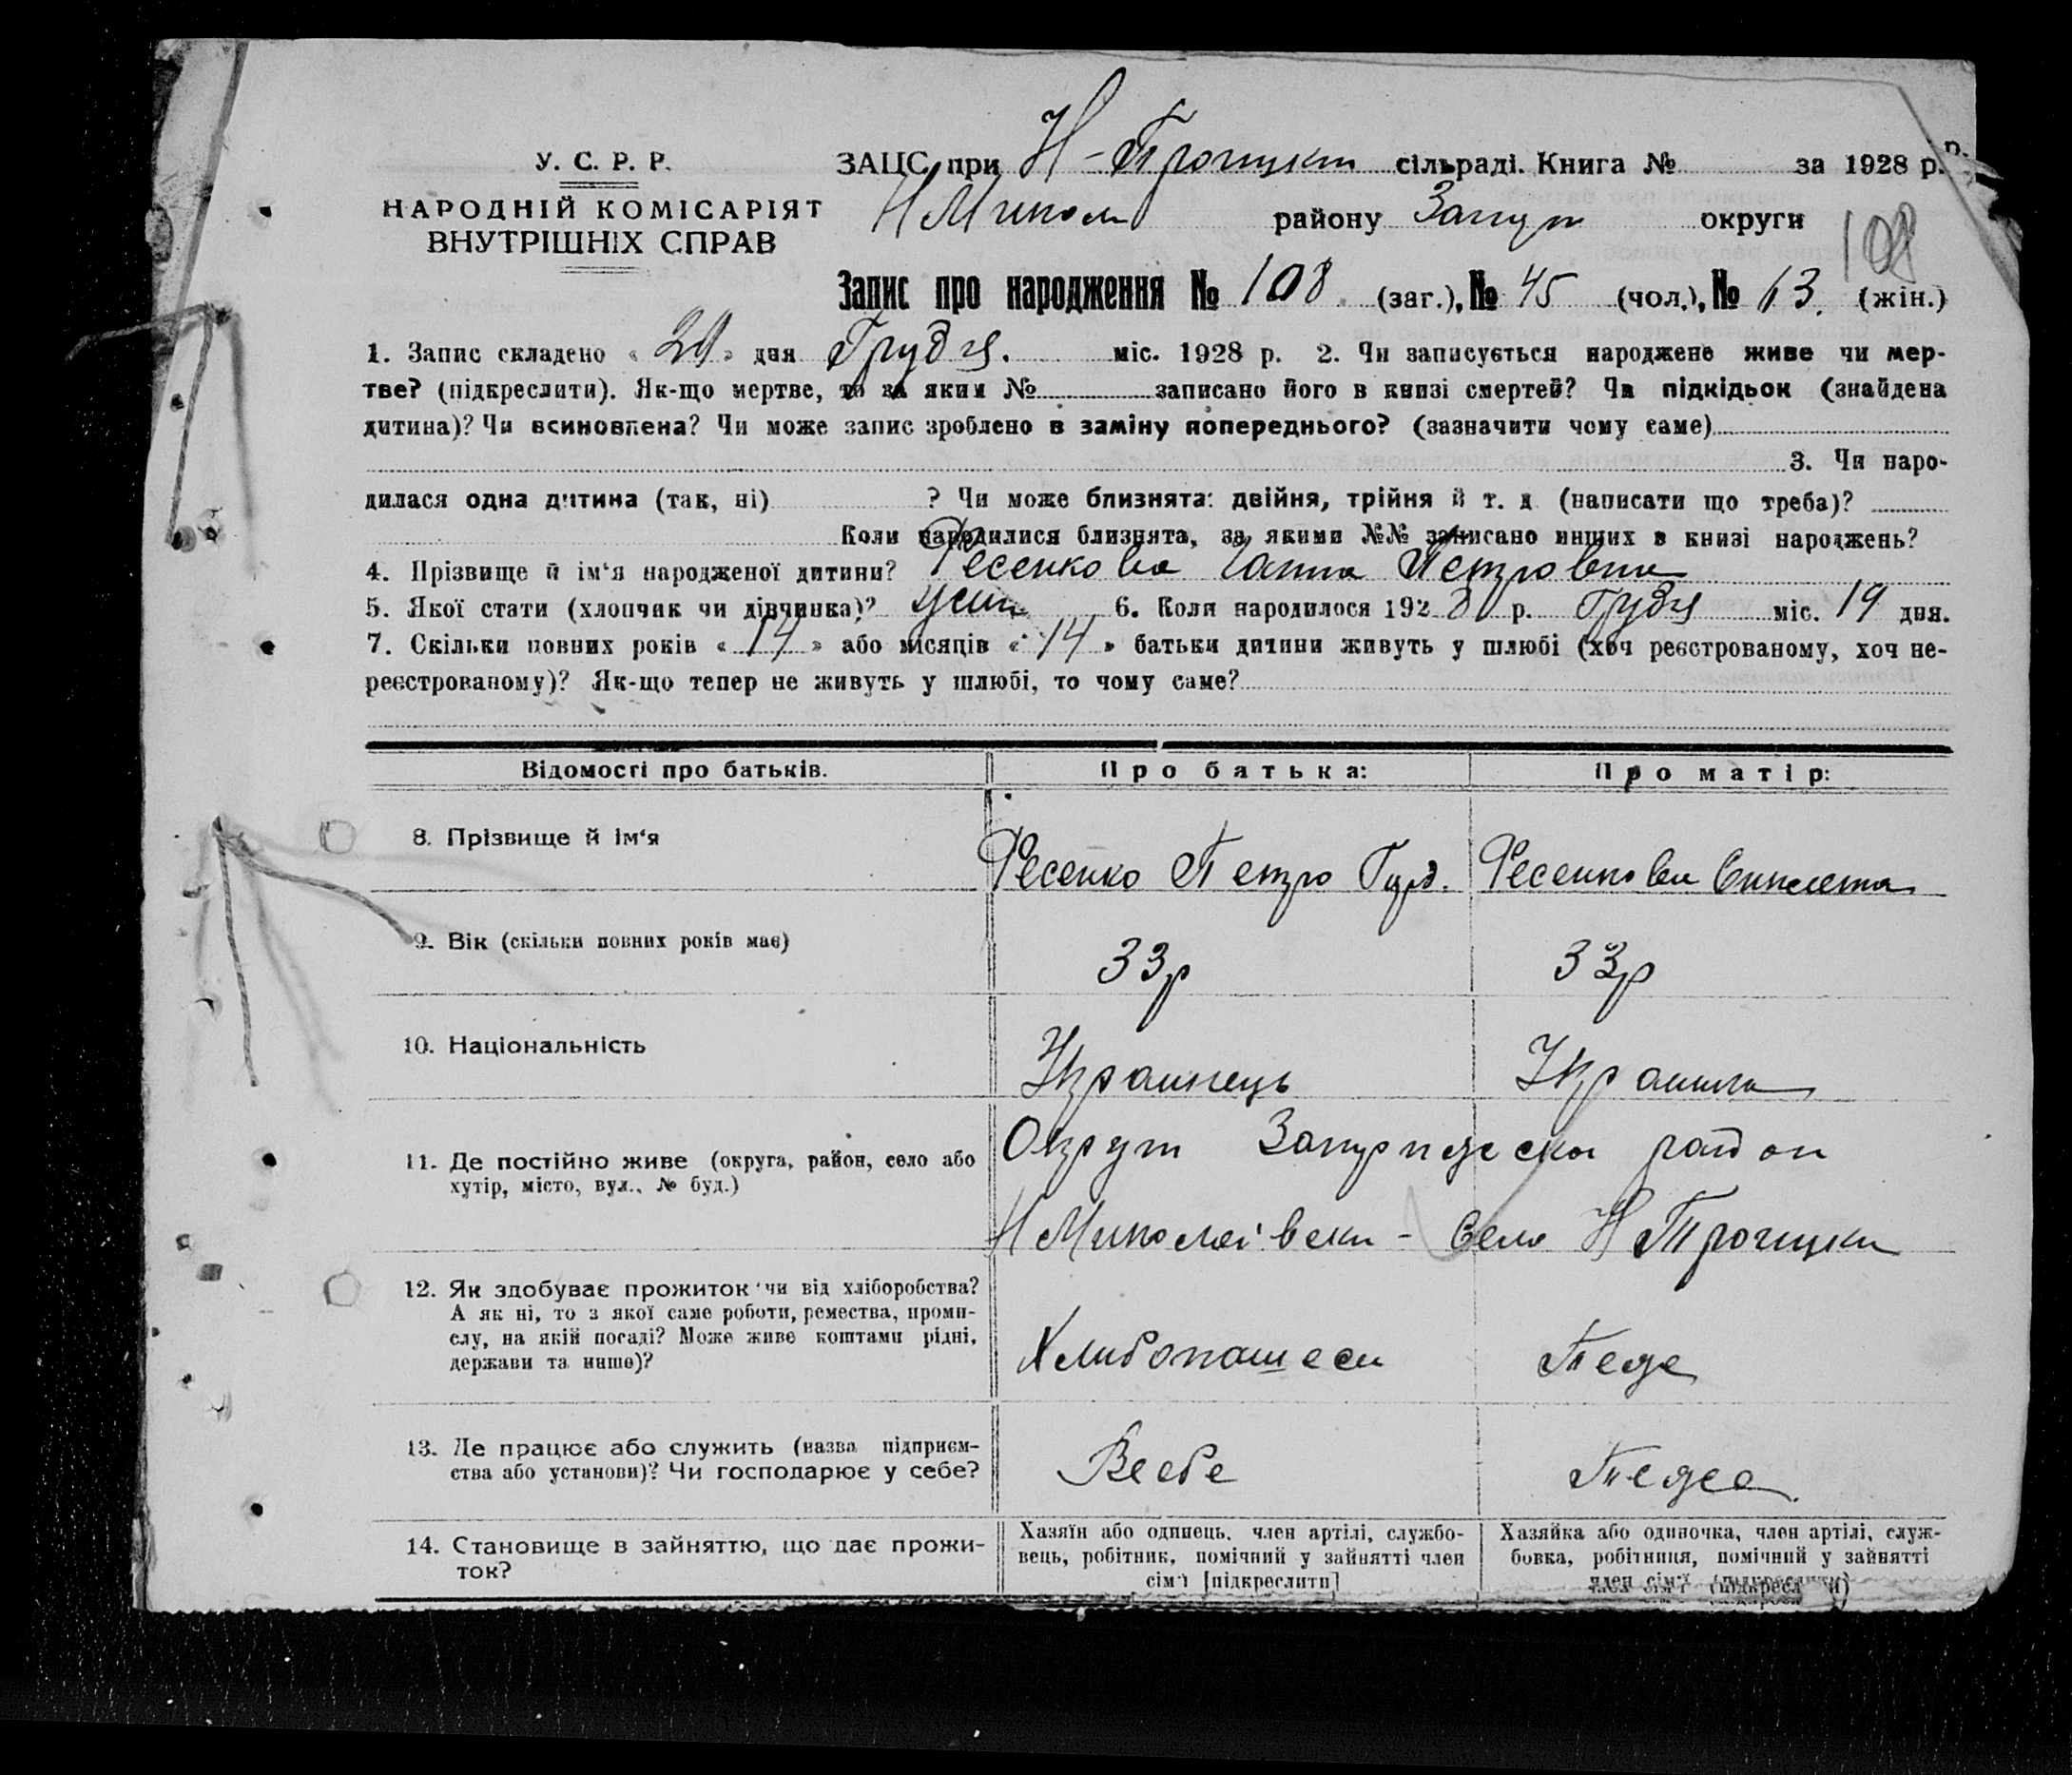 У. С. Р. Р.
НАРОДНІЙ КОМІСАРІЯТ
ВНУТРІШНІХ СПРАВ
ЗАЦС при Н-Троицкт сільраді. Книга № за 1928 р.
Н Микол району Запур округи
108
Запис про народження № 108 (заг.), № 45 (чол.), № 63. (жін.)
1. Запис складено « » дня Грудя. міс. 1928 р. 2. Чи записується народжене живе чи мер-
тве? (підкреслити). Як-що мертве, то за яким № записано його в книзі смертей? Чи підкідьок (знайдена
дитина)? Чи всиновлена? Чи може запис зроблено в заміну попереднього? (зазначити чому саме)
3. Чи наро-
дилася одна дитина (так, ні) ? Чи може близнята: двійня, трійня й т. д. (написати що треба)?
Коли народилися близнята, за якими №№ записано инших в книзі народжень?
4. Прізвище й ім‘я народженої дитини? Фесенкова Ганна Петровна
5. Якої стати (хлопчик чи дівчинка)? 6. Коли народилося 1928 р. Грудя міс. 19 дня.
7. Скільки повних років « 14 » або місяців « 14 » батьки дитини живуть у шлюбі (хоч реєстрованому, хоч не-
реєстрованому)? Як-що тепер не живуть у шлюбі, то чому саме?
Відомості про батьків. Про батька: Про матір:
8. Прізвище й ім‘я Фесенко Петро Фесенкова
9. Вік (скільки повних років має) 33р 33р
10. Національність Украинець Украинка
11. Де постійно живе (округа, район, село або
хутір, місто, вул., № буд.)
Округ район
Н Миколаівски - Село Н Троицки
12. Як здобуває прожиток чи від хліборобства?
А як ні, то з якої саме роботи, ремества, проми-
слу, на якій посаді? Може живе коштами рідні,
держави та инше)?
Теже
13. Де працює або служить (назва підприєм-
ства або установи)? Чи господарює у себе?
Всебе
14. Становище в зайняттю, що дає прожи-
ток?
Хазяїн або одинець, член артілі, службо-
вець, робітник, помічний у зайнятті член
сім‘ї [підкреслити]
Хазяйка або одиночка, член артілі, служ-
бовка, робітниця, помічний у зайнятті
член сім‘ї (підкреслити)